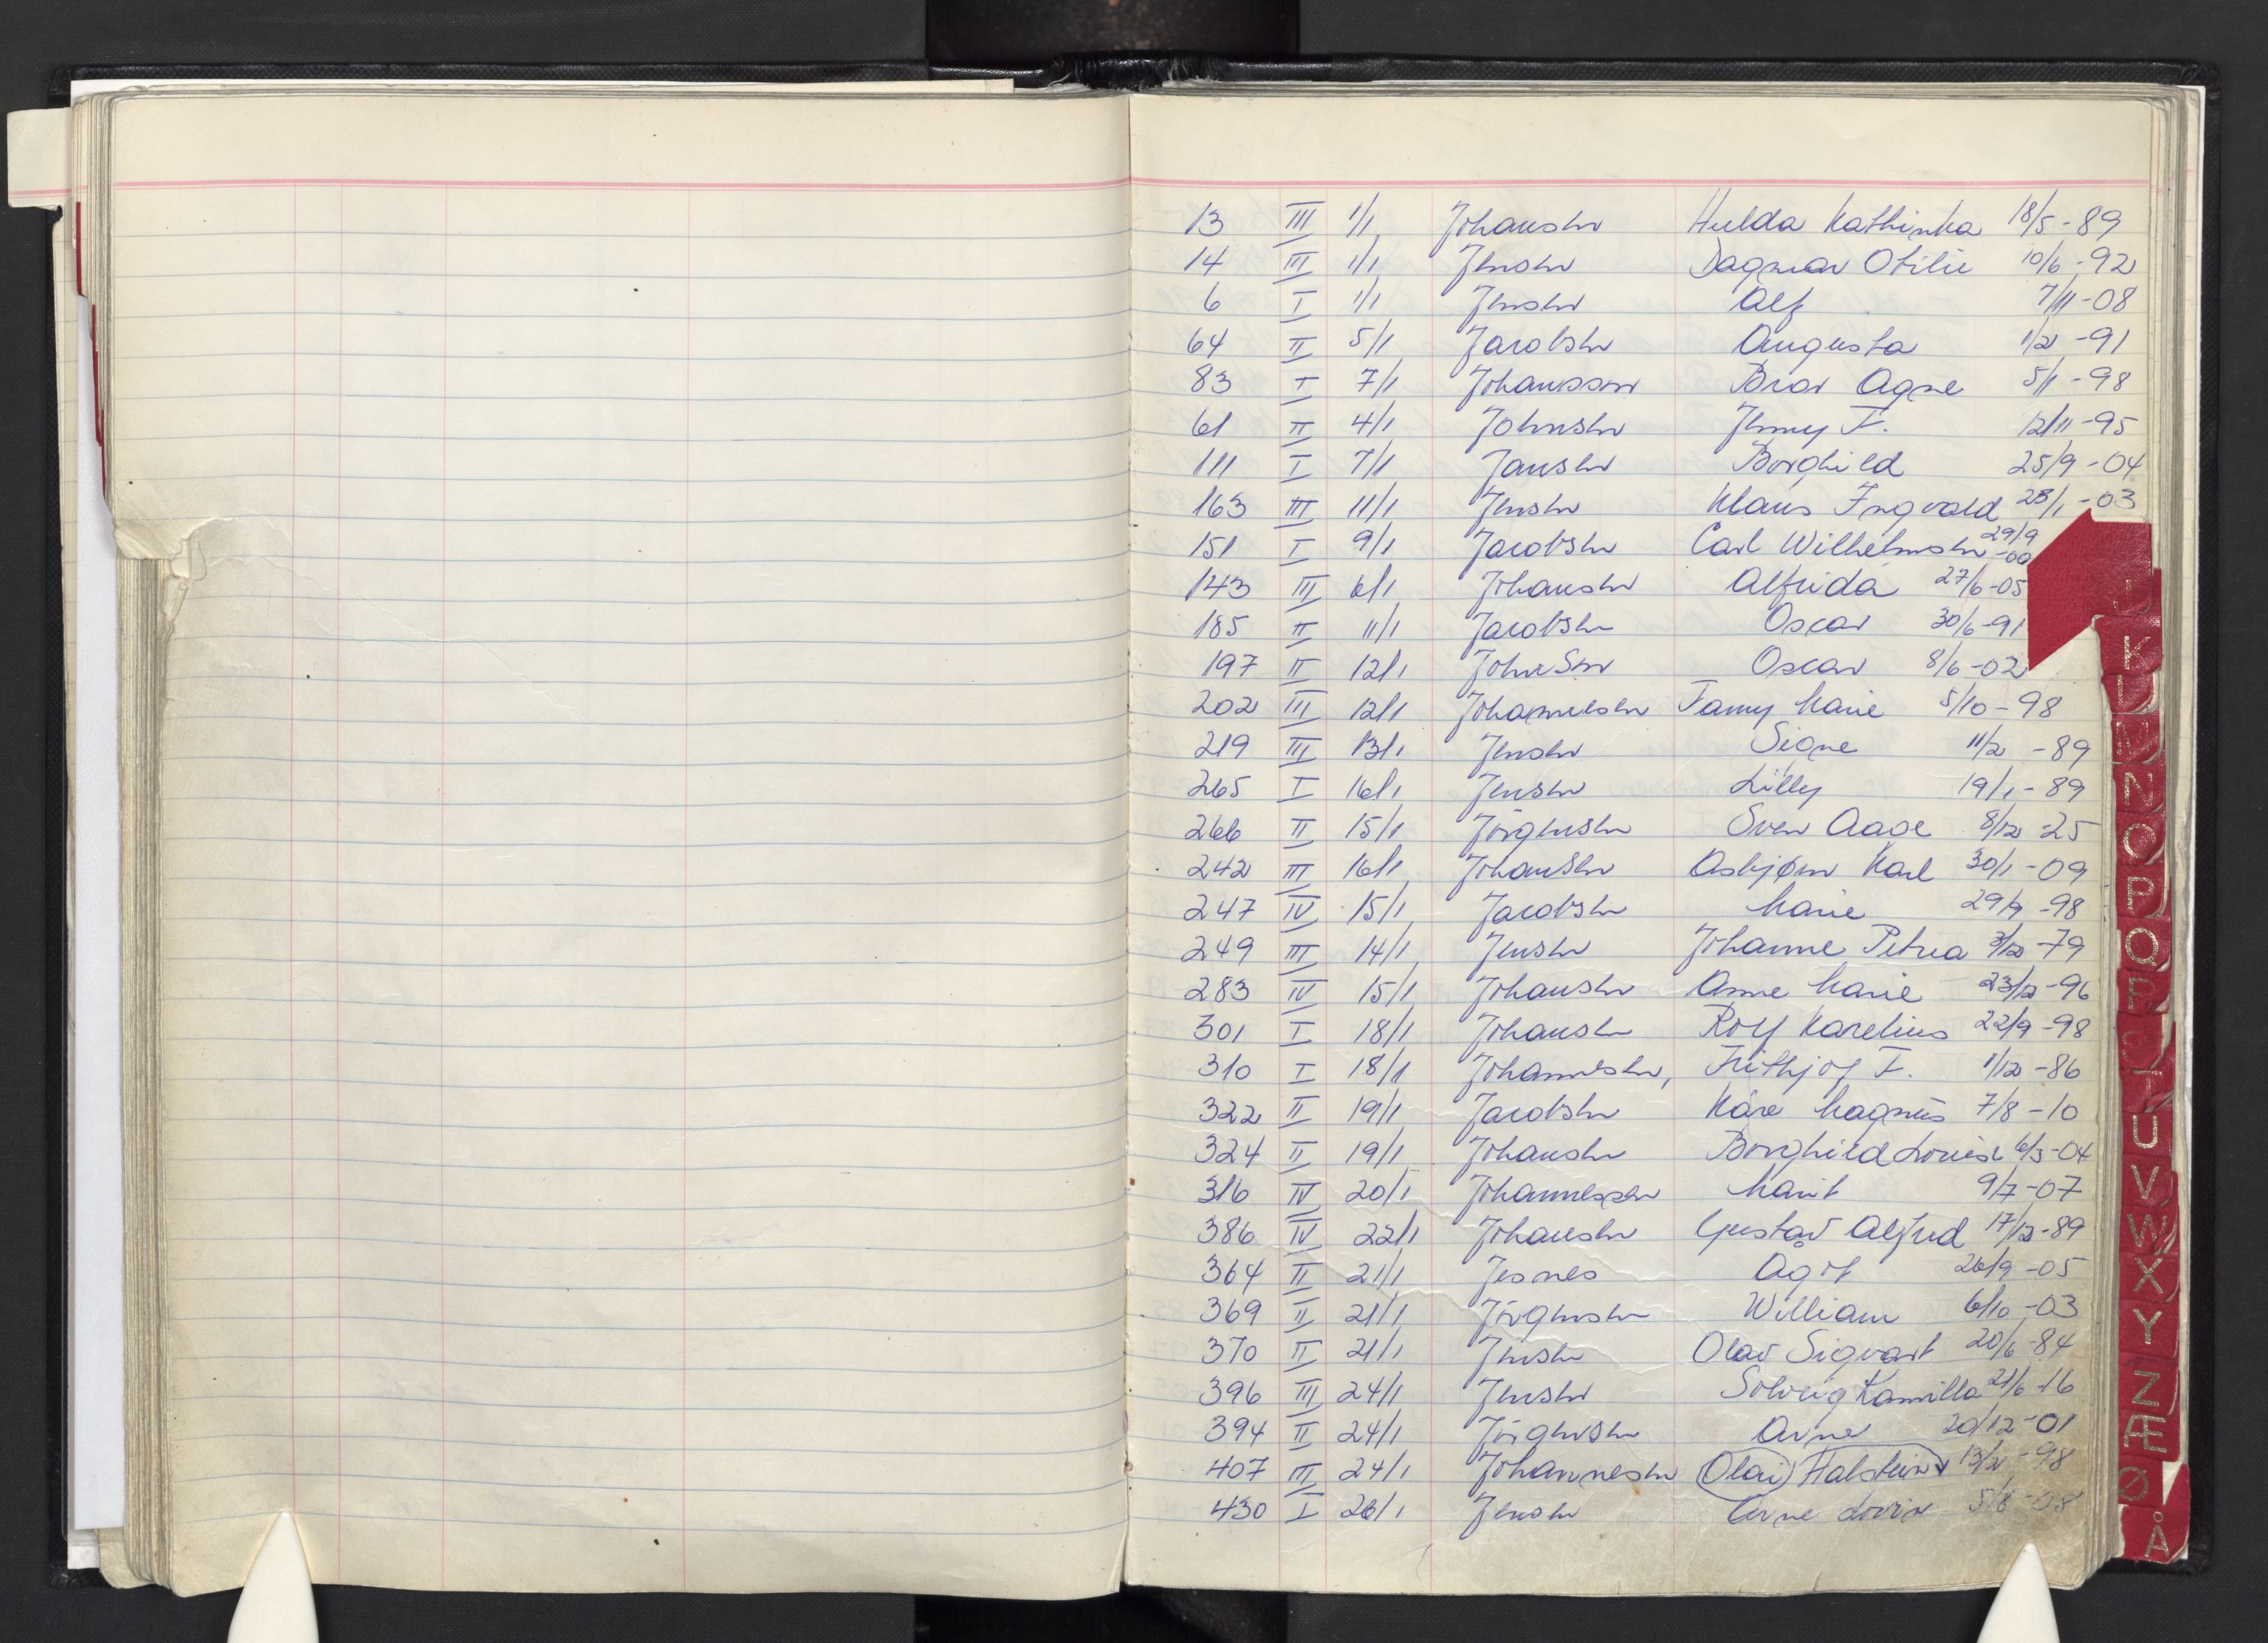 13 III 1/1 Johansen Hulda Kathinka 18/5-89
14 III 1/1 Jensen Dagmar Otilie 10/6-92
6 I 1/1 Jensen Alf 7/11-08
64 II 5/1 Jacobsen Augusta 1/2-91
83 I 7/1 Johansson Bror Agne 5/1-98
61 II 4/1 Johnsen Jenny F. 12/11-95
111 I 7/1 Jansen Borghild 25/9-04
163 III 11/1 Jensen Klaus Ingvald 28/1-03
151 I 9/1 Jacobsen Carl Wilhelmsen 29/9-00
143 III 6/1 Johansen Alfrida 27/6-05
185 II 11/1 Jacobsen Oscar 30/6-91
197 II 12/1 Johnson Oscar 8/6-02
202 III 12/1 Johannesen Fanny Marie 5/10-98
219 III 13/1 Jensen Signe 11/2-89
265 I 16/1 Jensen Lilly 19/1-89
266 II 15/1 Jörgensen Sven Aage 8/12-25
242 III 16/1 Johansen Asbjørn Karl 30/1-09
247 IV 15/1 Jacobsen Marie 29/9-98
249 III 14/1 Jensen Johanne Petrea 3/12-79
283 IV 15/1 Johansen Anne Marie 23/12-96
301 I 18/1 Johansen Rolf Karelius 22/9-98
310 I 18/1 Johannesen, Frithjof F. 1/12-86
322 II 19/1 Jacobsen Kåre Magnus 7/8-10
324 II 19/1 Johansen Borghild Louise 6/3-04
316 IV 20/1 Johannessen Marit 9/7-07
386 IV 22/1 Johansen Gustav Alfred 17/12-89
364 II 21/1 Jesnes Ågot 26/9-05
369 II 21/1 Jörgensen William 6/10-03
370 II 21/1 Jensen Olav Sigvart 20/6-84
396 III 24/1 Jensen Solveig Kamilla 21/6-16
394 II 24/1 Jörgensen Arne 20/12-01
407 III 24/1 Johannesen Olai Halstein 13/2-98
430 I 26/1 Jensen Arne 5/8-08
J
K
L
M
N
O
P
Q
R
S
T
U
V
W
X
Y
Z
Æ
Ø
Å